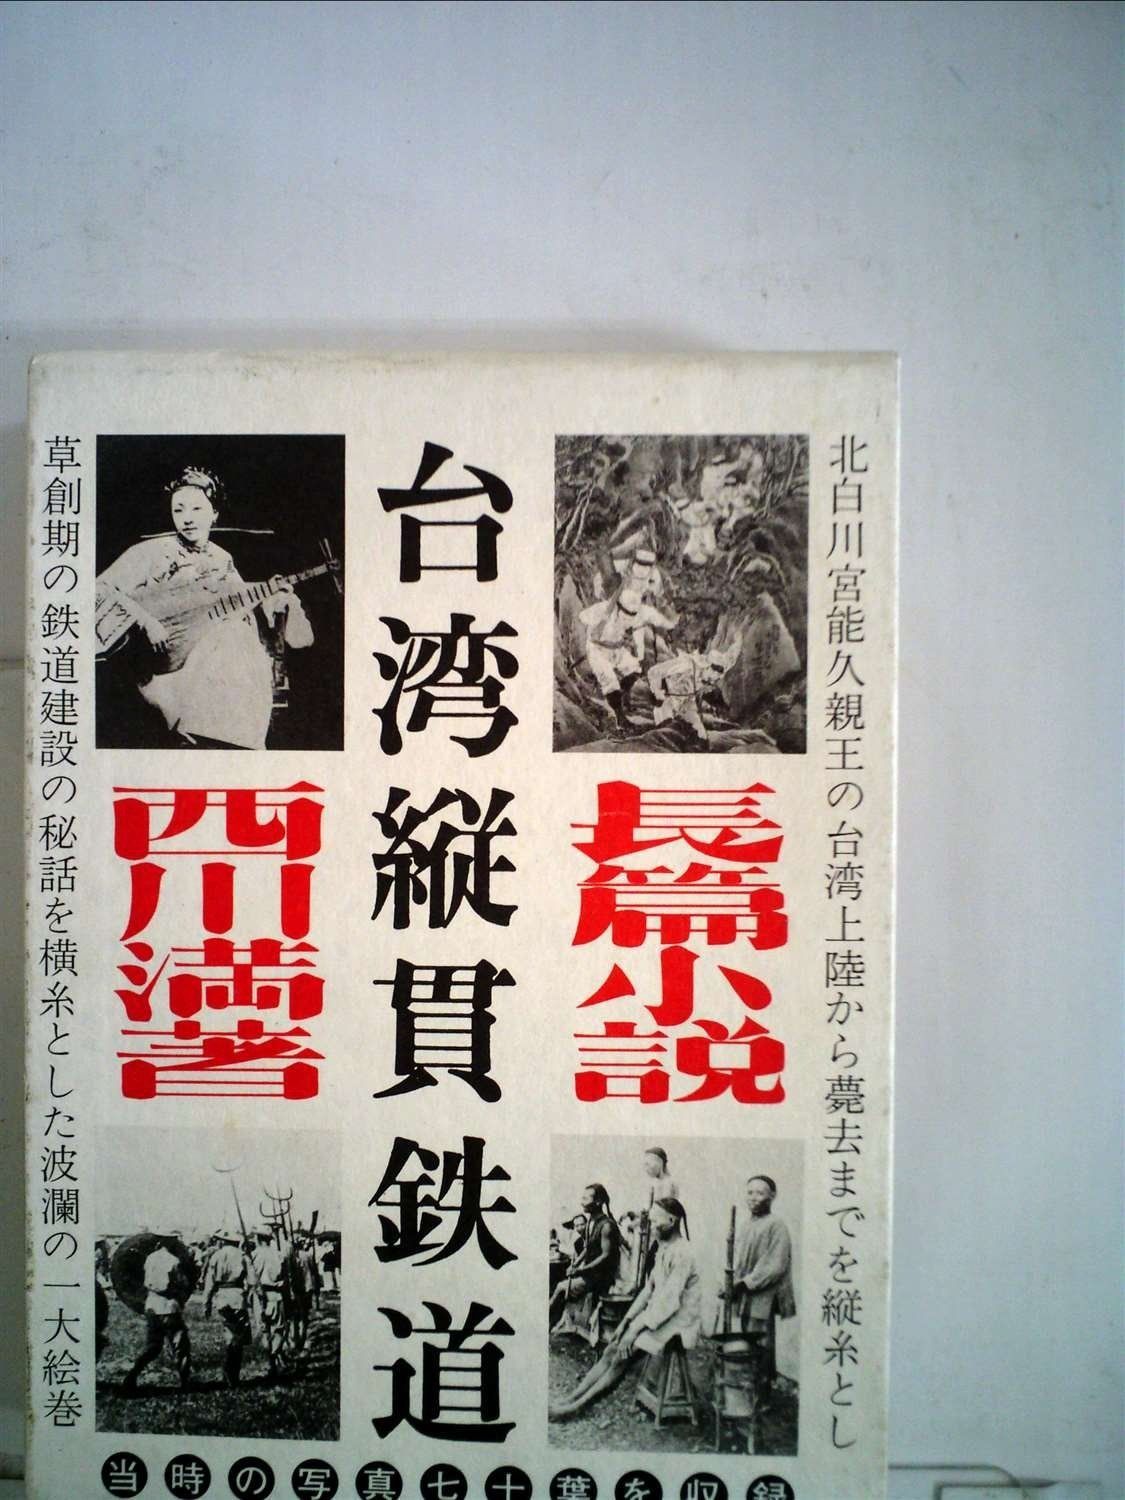 北白川宮能久親王の台湾上陸から薨去までを縦糸とし
長篇小説
台湾縦貫鉄道
西川満著
草創期の鉄道建設の秘話を横糸とした波瀾の一大絵巻
当時の写真七十葉を収録